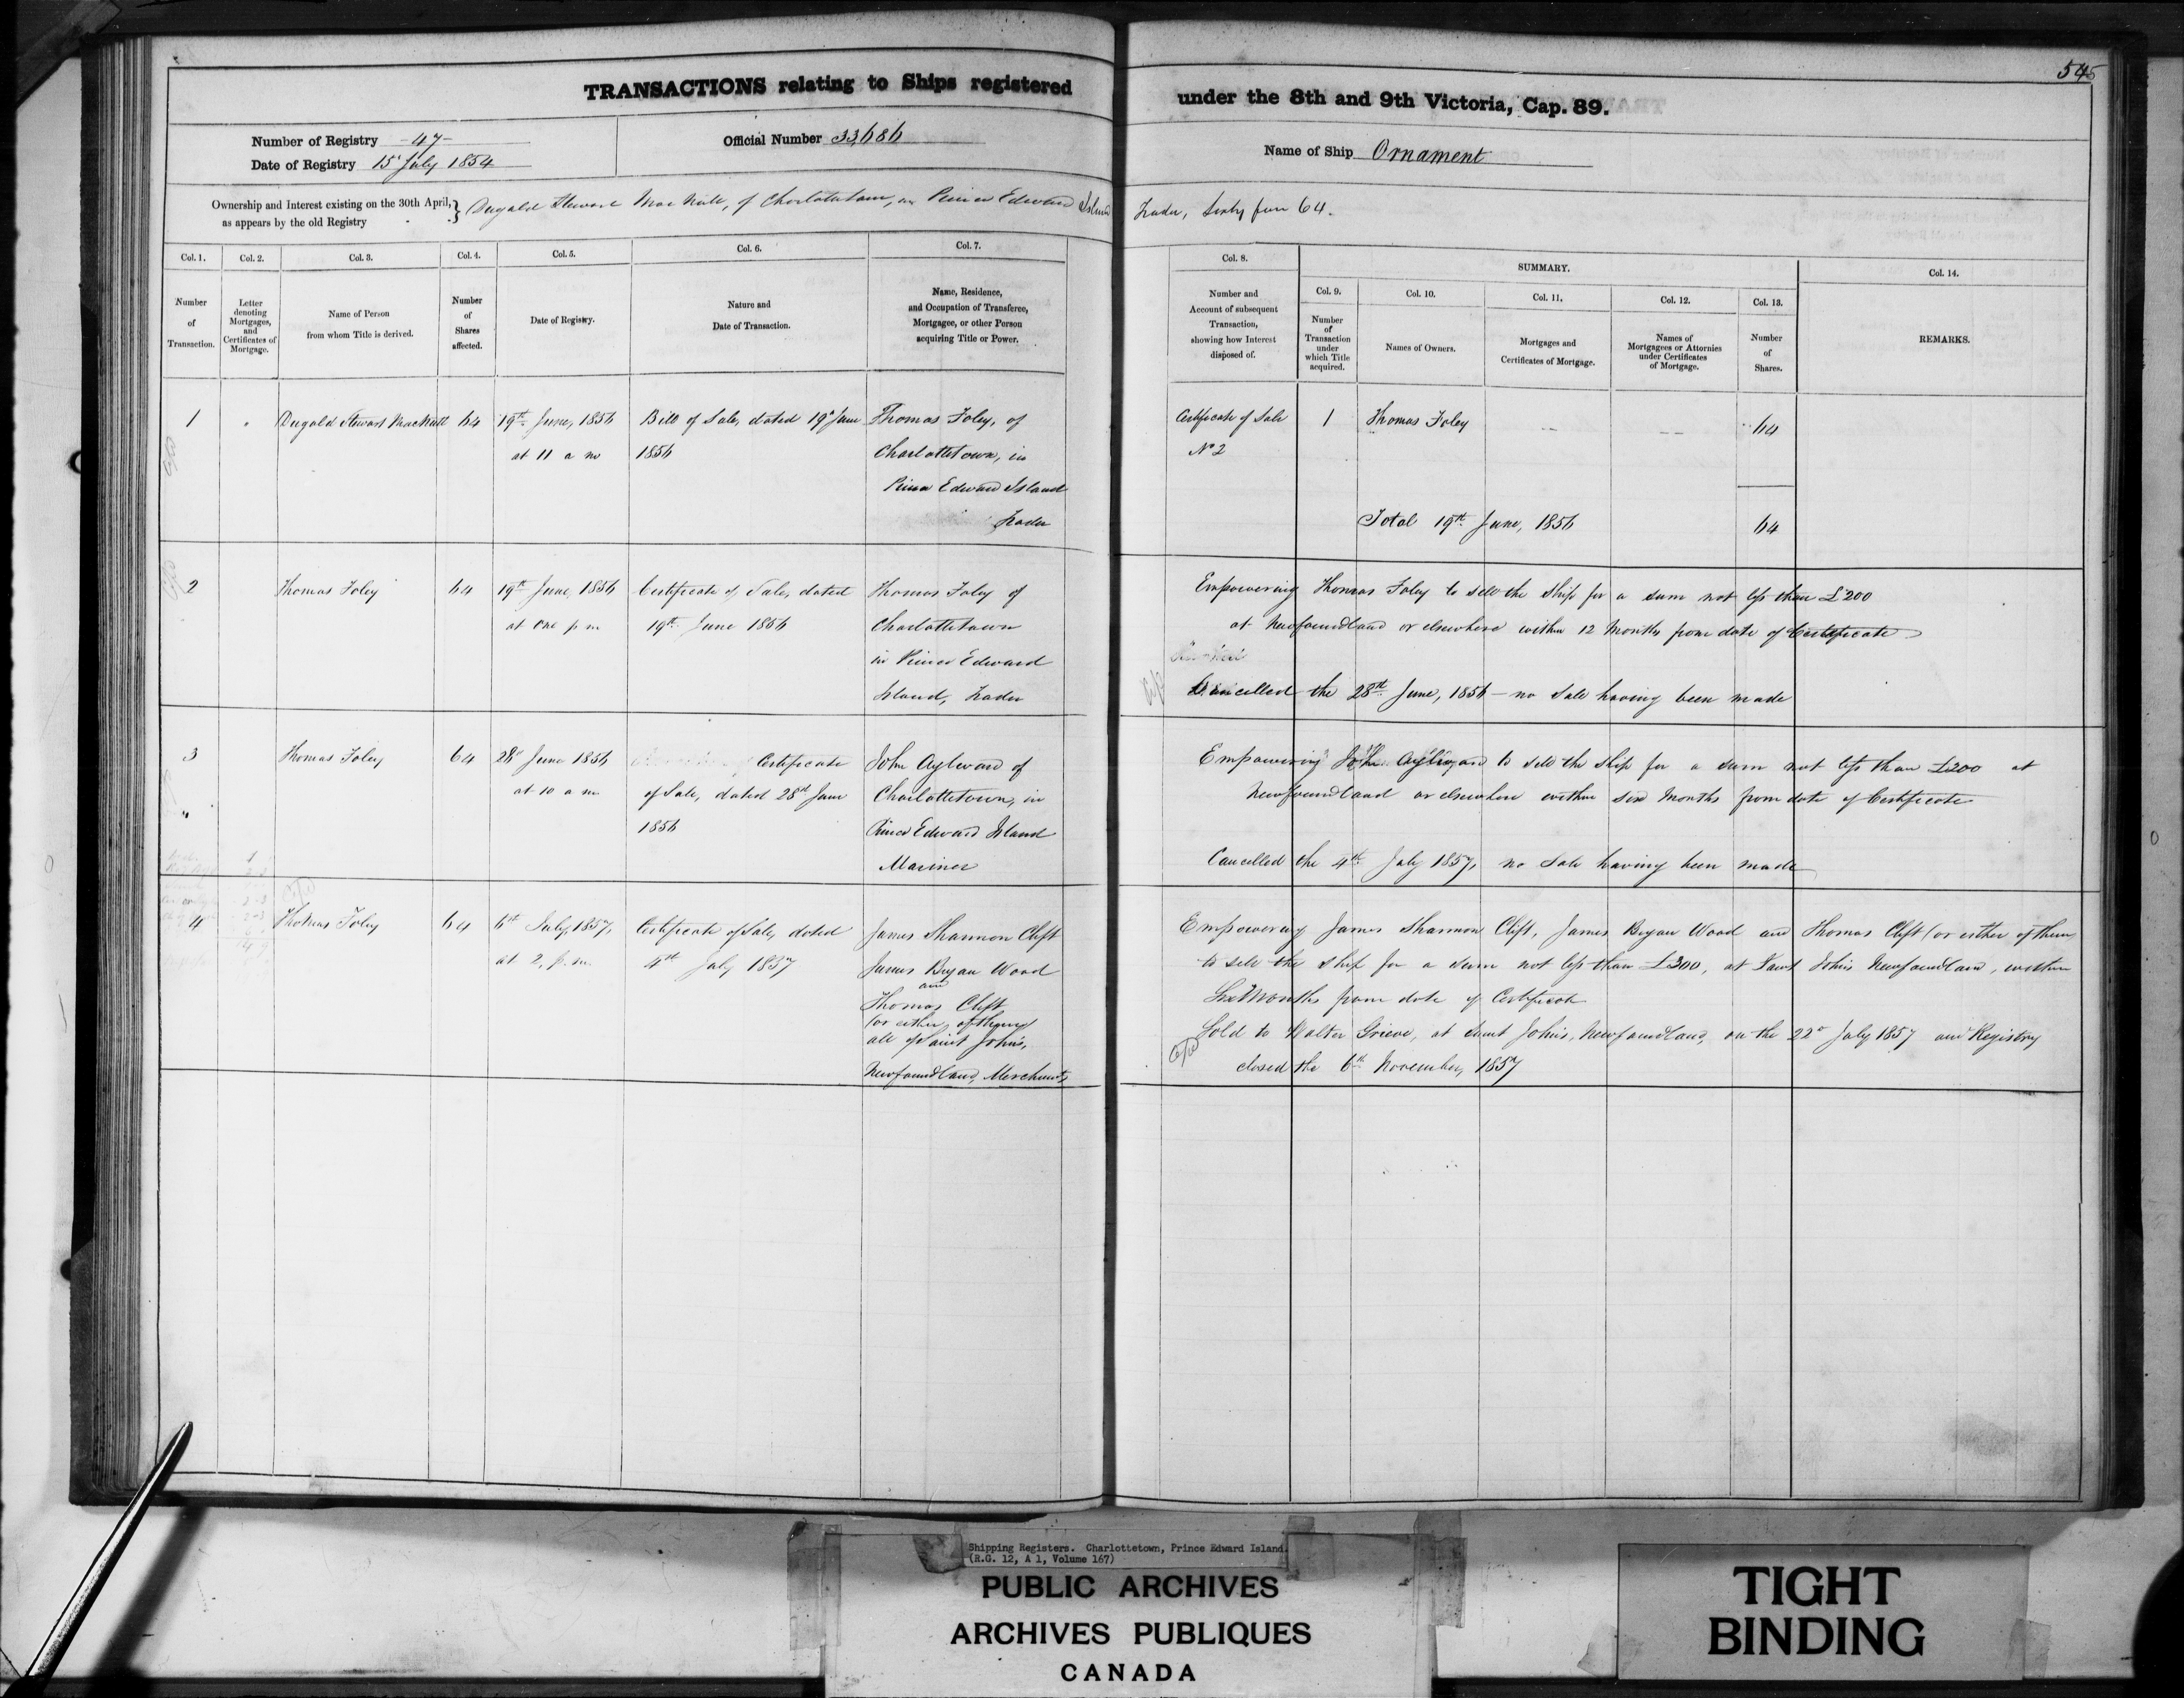 545
TRANSACTIONS relating to Ships registered under the 8th and 9th Victoria, Cap. 89.
Number of Registry -47-
Date of Registry 15 July 1854
Official Number 33686
Name of Ship Ornament
Ownership and Interest existing on the 30th April, as appears by the old Registry } Dugald Stewart MacNutt, of Charlottetown, in Prince Edward Island
Trader, Sixty four 64.
Col. 1.
Number of Transaction.
Col. 2.
Letter denoting Mortgages, and Certificates of Mortgage.
Col. 3.
Name of Person from whom Title is derived.
Col. 4.
Number of Shares affected.
Col. 5.
Date of Registry.
Col. 6.
Nature and Date of Transaction.
Col. 7.
Name, Residence, and Occupation of Transferee, Mortgagee, or other Person acquiring Title or Power.
Col. 8.
Number and Account of subsequent Transaction, showing how Interest disposed of.
SUMMARY.
Col. 9.
Number of Transaction under which Title acquired.
Col. 10.
Names of Owners.
Col. 11.
Mortgages and Certificates of Mortgage.
Col. 12.
Names of Mortgagees or Attornies under Certificates of Mortgage.
Col. 13.
Number of Shares.
Col. 14.
REMARKS.
1
"
Dugald Stewart MacNutt
64
19th June, 1856
at 11 a m
Bill of Sale, dated 19th June
1856
Thomas Foley, of
Charlottetown, in
Prince Edward Island
Trader
Certificate of Sale
No 2
1
Thomas Foley
64
Total 19th June, 1856
64
2
Thomas Foley
64
19th June, 1856
at one p m
Certificate of Sale, dated
19th June 1856
Thomas Foley of
Charlottetown
in Prince Edward
Island, Trader
Empowering Thomas Foley to sell the Ship for a sum not less than £200
at Newfoundland or elsewhere within 12 Months from date of Certificate
Cancelled the 28th June, 1856 - no Sale having been made
3
"
Thomas Foley
64
28th June 1856
at 10 a m
Certificate
of Sale, dated 28th June
1856
John Aylward of
Charlottetown, in
Prince Edward Island
Mariner
Empowering John Aylward to sell the Ship for a sum not less than £200 at
Newfoundland or elsewhere within six Months from date of Certificate
Cancelled the 4th July 1857, no Sale having been made
4
Thomas Foley
64
6th July, 1857,
at 2, p. m.
Certificate of Sale, dated
4th July 1857
James Shannon Clift
James Bryan Wood
and
Thomas Clift
(or either of them)
all of Saint John's,
Newfoundland, Merchants
Empowering James Shannon Clift, James Bryan Wood and Thomas Clift (or either of them)
to sell the Ship for a sum not less than £300, at Saint John's Newfoundland, within
Six Months from date of Certificate
Sold to Walter Grieve, at Saint John's, Newfoundland, on the 22d July 1857 and Registry
closed the 6th November, 1857
Shipping Registers. Charlottetown, Prince Edward Island.
(R.G. 12, A 1, Volume 167)
PUBLIC ARCHIVES
ARCHIVES PUBLIQUES
CANADA
TIGHT
BINDING